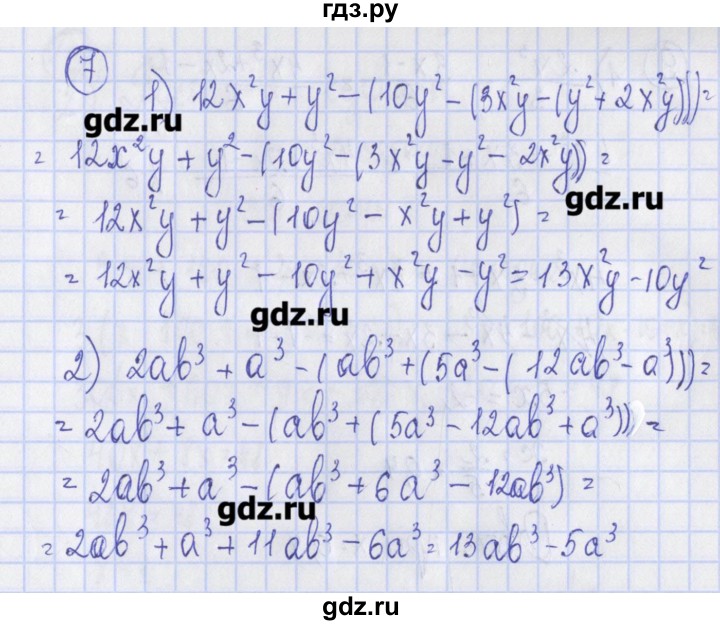 гдз.ру
7
1) 12x²y + y² - (10y² - (3x²y - (y² + 2x²y))) =
gdz.ru
= 12x²y + y² - (10y² - (3x²y - y² - 2x²y)) =
gdz.ru
= 12x²y + y² - (10y² - x²y + y²) =
= 12x²y + y² - 10y² + x²y - y² = 13x²y - 10y²
gdz.ru
2) 2ab³ + a³ - (ab³ + (5a³ - (12ab³ - a³))) =
= 2ab³ + a³ - (ab³ + (5a³ - 12ab³ + a³)) =
= 2ab³ + a³ - (ab³ + 6a³ - 12ab³) =
gdz.ru
= 2ab³ + a³ + 11ab³ - 6a³ = 13ab³ - 5a³
gdz.ru